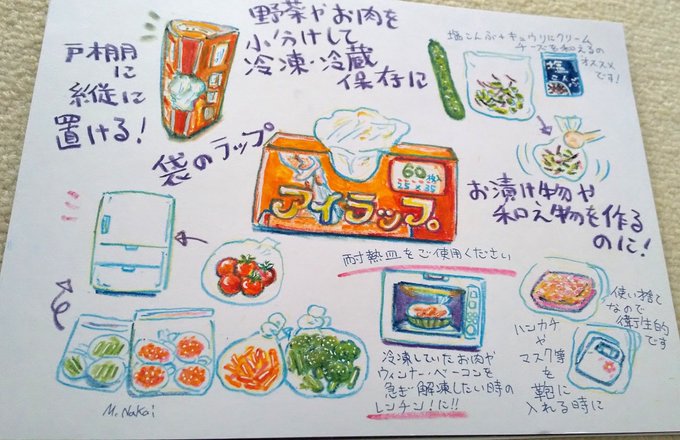 戸棚
に
縦に
置ける!
野菜やお肉を
小分けして
冷凍・冷蔵
保存に
塩こんぶ+キュウリにクリーム
チーズを和えるの
オススメ
です!
塩
こんぶ
袋のラップ
60枚入
25×35
アイラップ
お漬け物や
和え物を作る
のに!
耐熱皿をご使用ください
冷凍していたお肉や
ウィンナー・ベーコンを
急ぎ解凍したい時の
レンチン!に!!
使い捨て
なので
衛生的
です
ハンカチ
や
マスク等
を
鞄に
入れる時に
M.Nakai